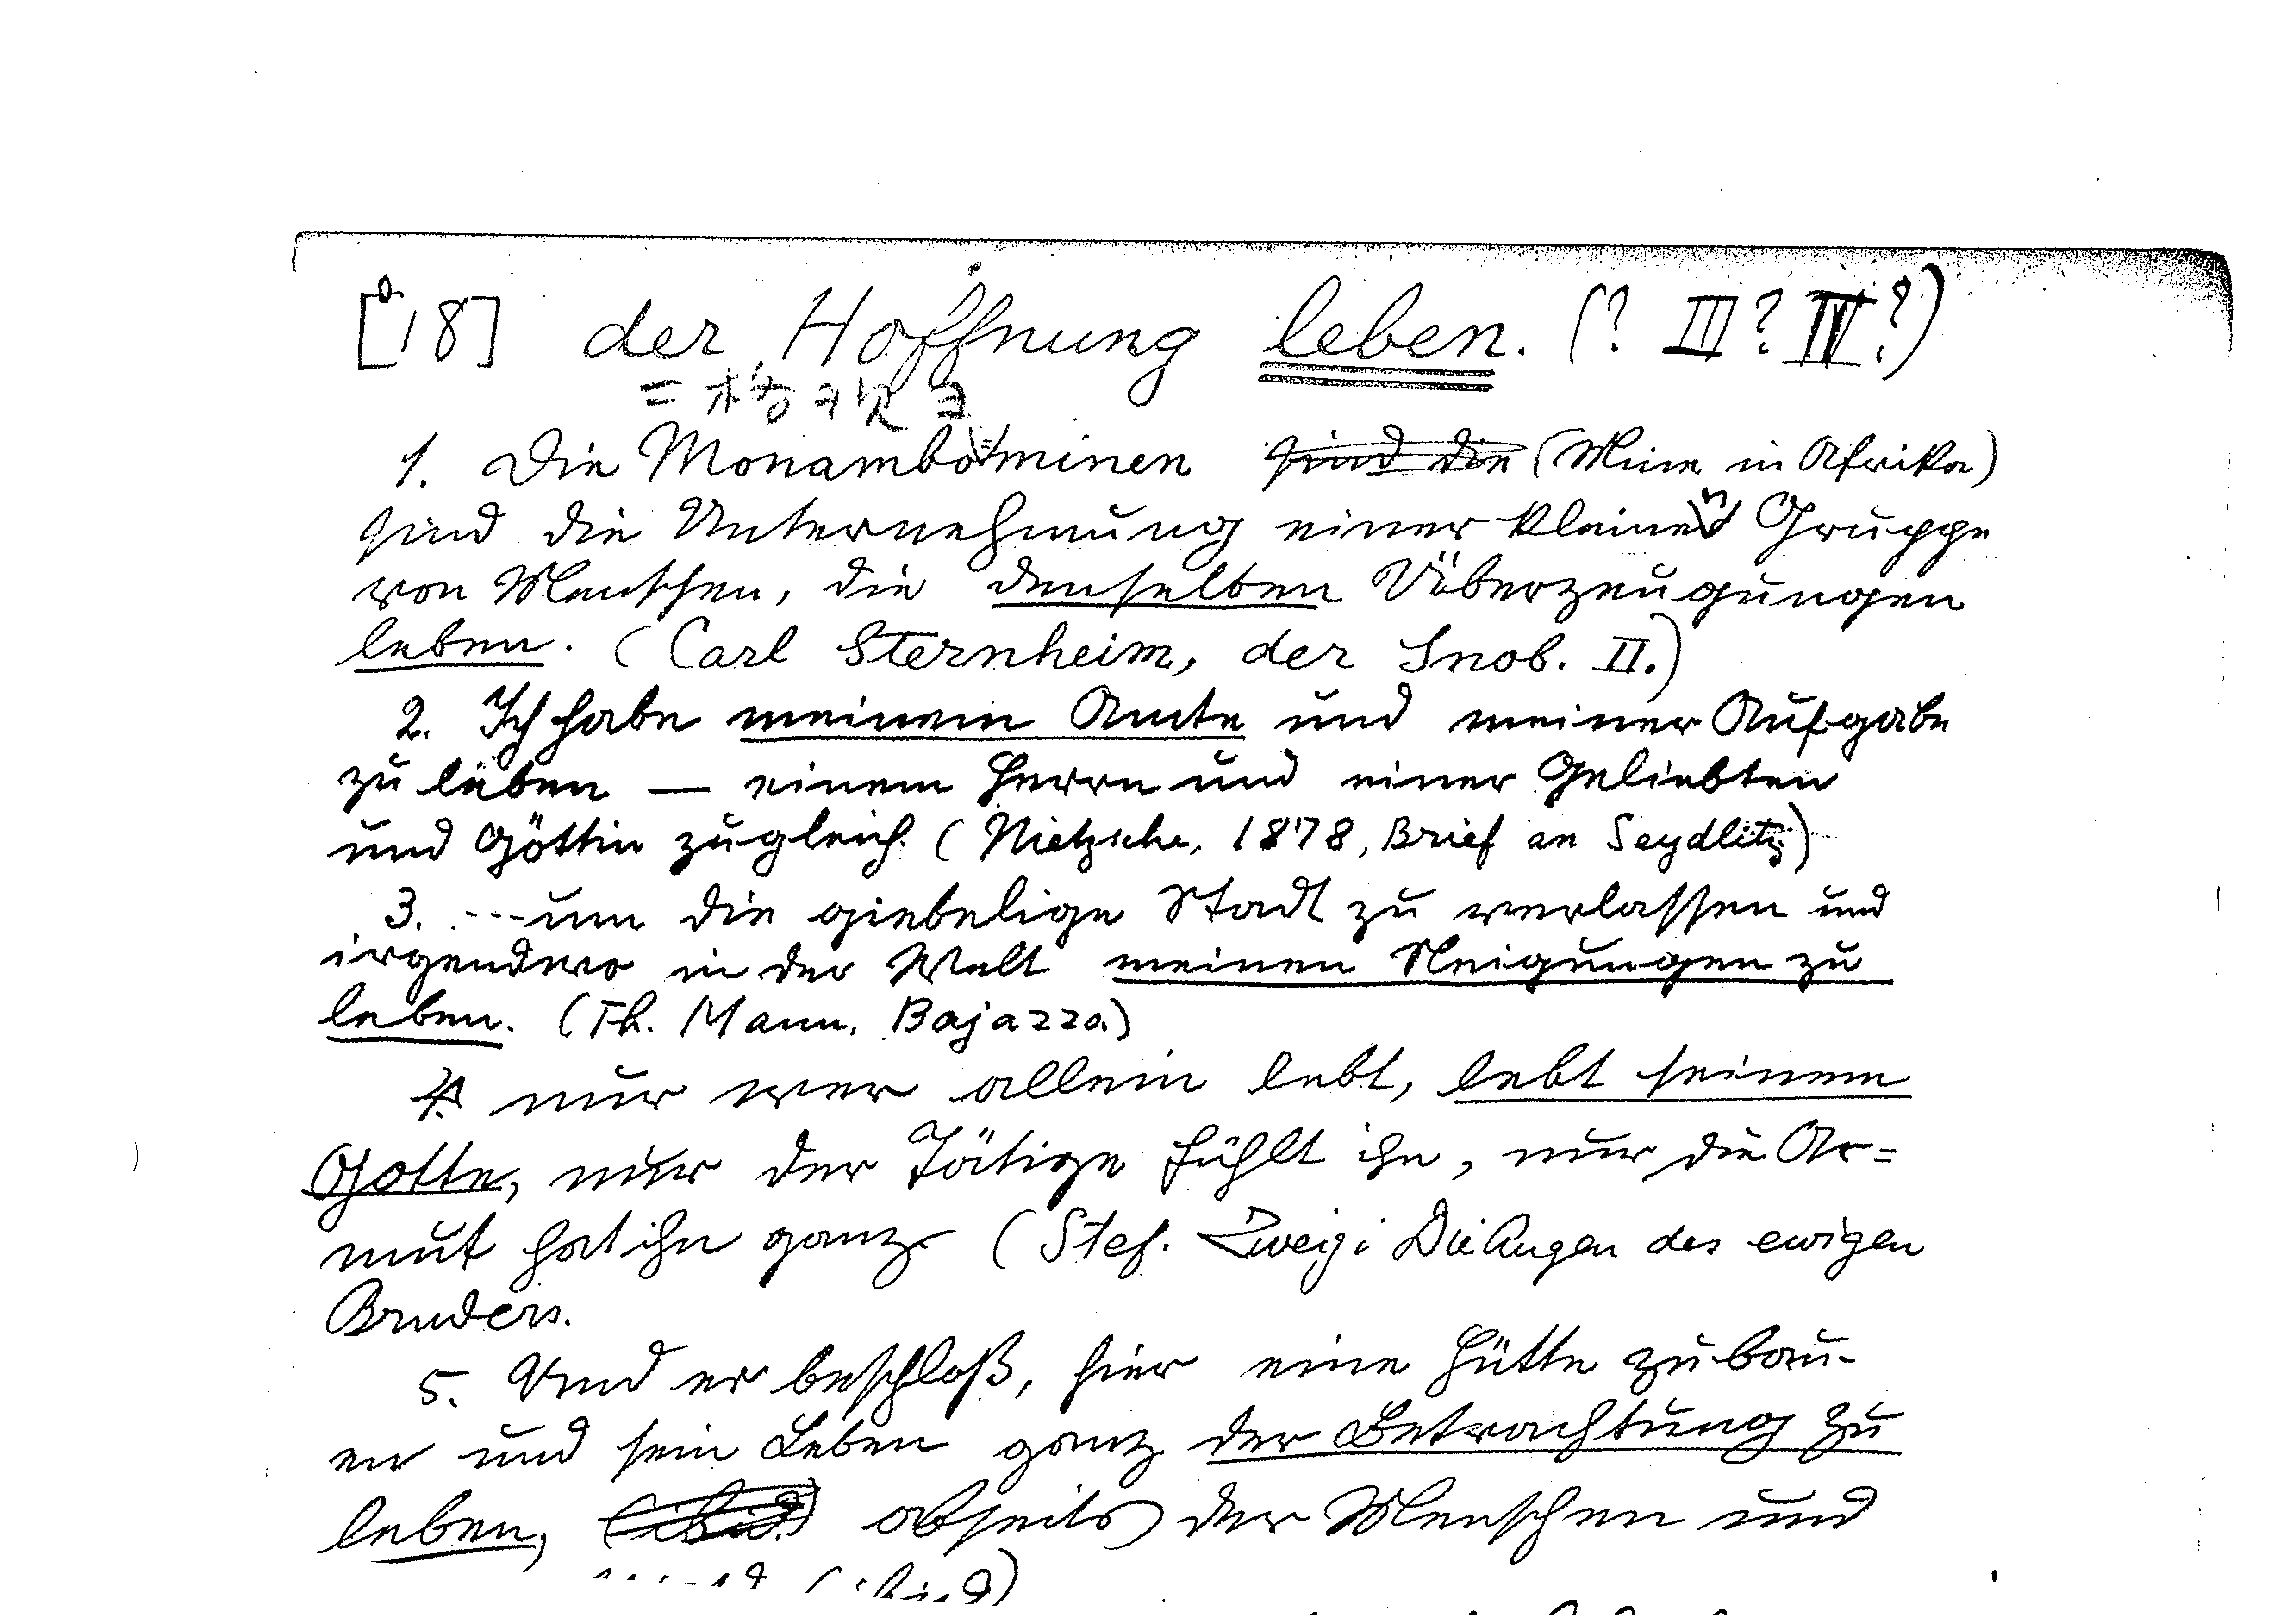 [18] der Hoffnung leben. (? III? IV?)
1. Die Monambominen sind die (Mine in Afrika)
sind die Unternehmung einer kleinen Gruppe
von Menschen, die denselben Überzeugungen
leben. (Carl Sternheim, der Snob. II.)
2. Ich habe meinem Amte und meiner Aufgabe
zu leben — einem Herrn und einer Geliebten
und Göttin zugleich. (Nietzsche, 1878, Brief an Seydlitz)
3. ---um die giebelige Stadt zu verlassen und
irgendwo in der Welt meinen Neigungen zu
leben. (Th. Mann, Bajazzo.)
4. nur wer allein lebt, lebt seinem
Gotte, nur der Tätige fühlt ihn, nur die Ar=
mut hat ihn ganz. (Stef. Zweig: Die Augen des ewigen
Bruders.
5. Und er beschloß, hier eine Hütte zu bau-
en und sein Leben ganz der Betrachtung zu
leben, (ibid.) abseits der Menschen und